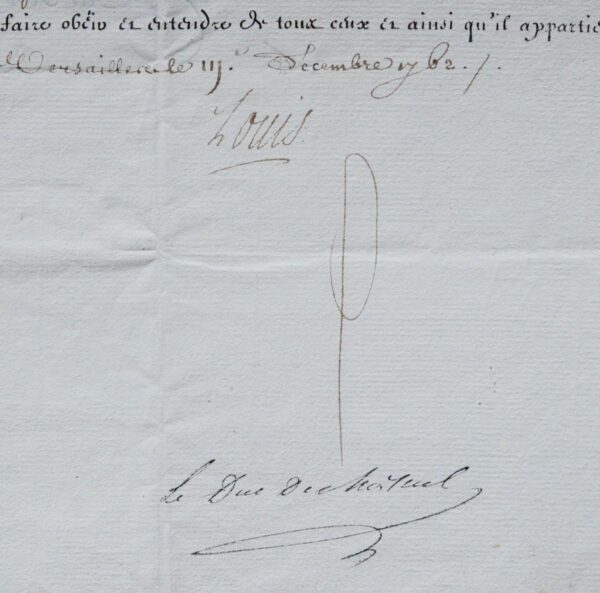 faire obëir et entendre de toux ceux et ainsi qu'il appartie
Versailles le iij.e Decembre 1762. /.
Louis
Le Duc De choiseul